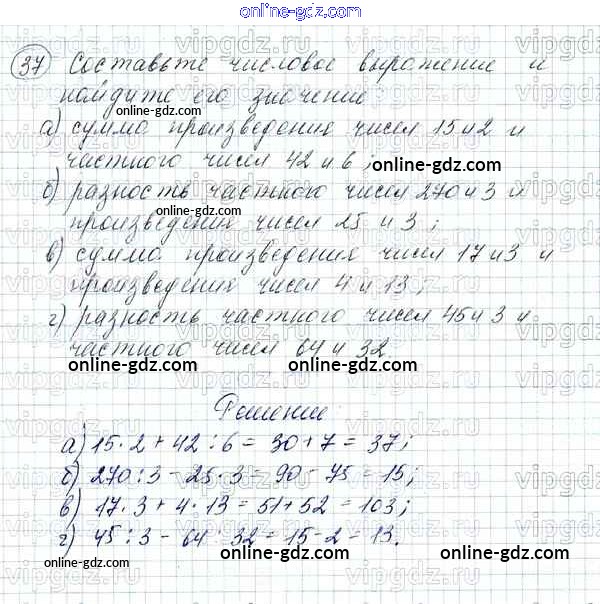 online-gdz.com
37 Составьте числовое выражение и
найдите его значение:
online-gdz.com
а) сумма произведения чисел 15 и 2 и
частного чисел 42 и 6;
online-gdz.com
б) разность частного чисел 270 и 3 и
online-gdz.com
произведения чисел 25 и 3;
в) сумма произведения чисел 17 и 3 и
online-gdz.com
произведения чисел 4 и 13;
г) разность частного чисел 45 и 3 и
частного чисел 64 и 32
online-gdz.com online-gdz.com
Решение:
а) 15 · 2 + 42 : 6 = 30 + 7 = 37;
б) 270 : 3 - 25 · 3 = 90 - 75 = 15;
в) 17 · 3 + 4 · 13 = 51 + 52 = 103;
г) 45 : 3 - 64 : 32 = 15 - 2 = 13.
online-gdz.com online-gdz.com
online-gdz.com
vipgdz.ru